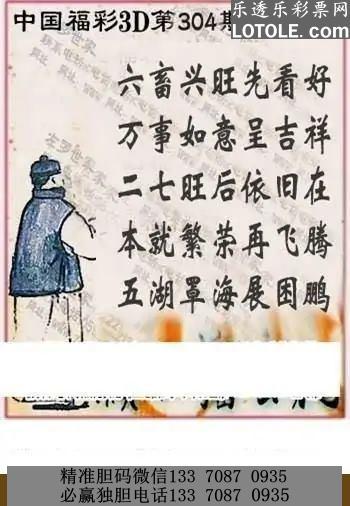 中国福彩3D第304期
乐透乐彩票网
LOTOLE.COM
六畜兴旺先看好
万事如意呈吉祥
二七旺后依旧在
本就繁荣再飞腾
五湖罩海展困鹏
精准胆码微信133 7087 0935
必赢独胆电话133 7087 0935